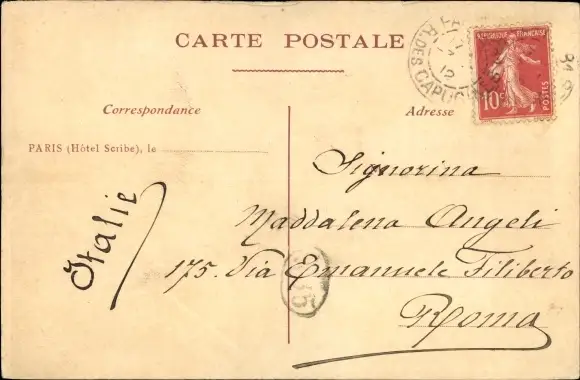 CARTE POSTALE
RÉPUBLIQUE FRANÇAISE
10c
POSTES
R. DES CAPUC
12
Correspondance
Adresse
PARIS (Hôtel Scribe), le
Italie
Signorina
Maddalena Angeli
175. Via Emanuele Filiberto
Roma